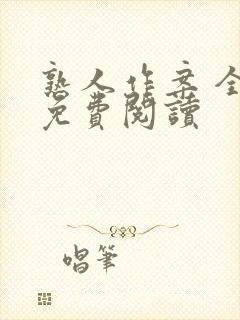 熟人作案全
免費閱讀
唱筆